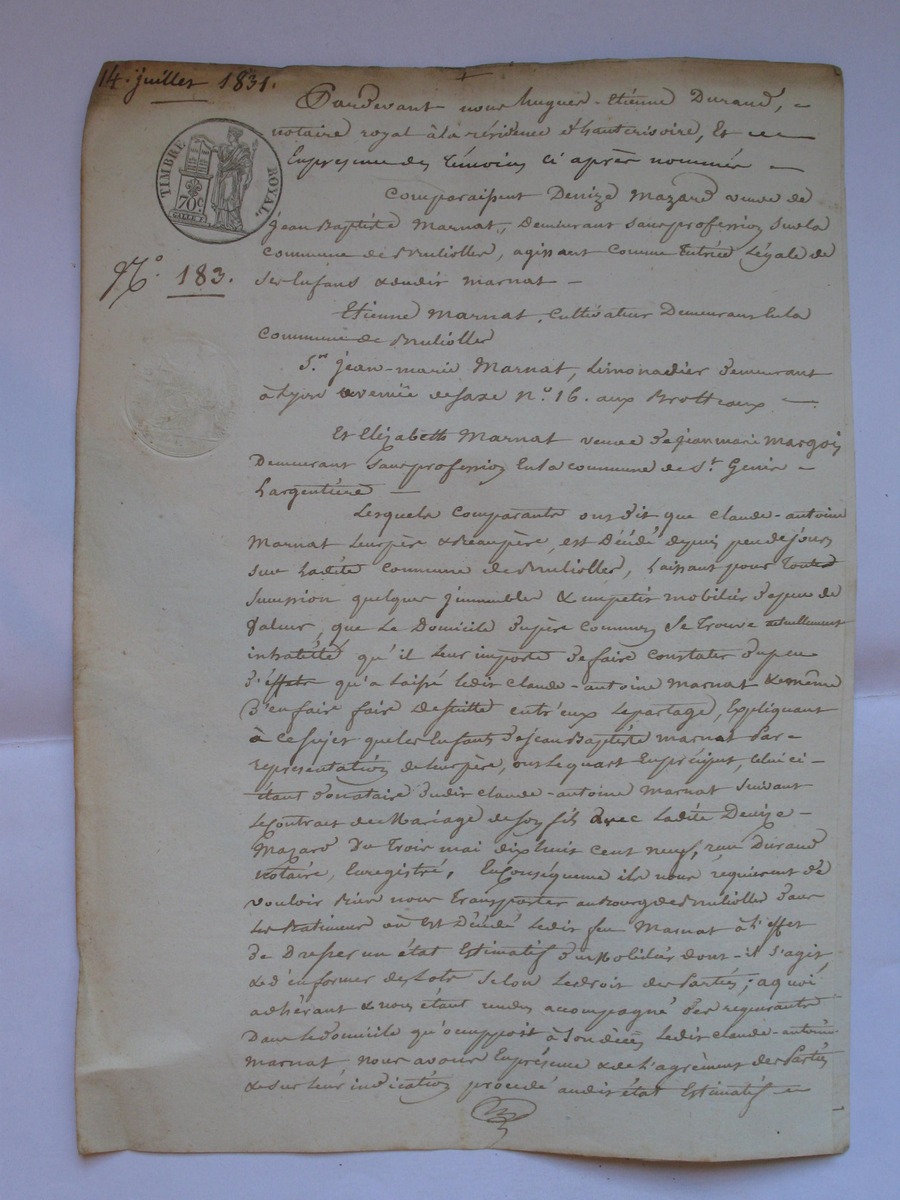 14. juillet 1831.
Pardevant nous hugues-Etienne Durand,
notaire royal à la résidence d'hauterivoire, Et
En présence des témoins ci après nommés
TIMBRE ROYAL
70c.
N.o 183.
Comparaissent Denize Mazard veuve de
jean Baptiste Marnat, Demeurant sans profession sur la
commune de Brulioller, agissant comme tutrice Légale de
Ses Enfans & dudit Marnat
Etienne Marnat, Cultivateur Demeurant En la
commune de Brulioller
S.r jean-marie Marnat, Limonadier demeurant
à Lyon avenüe de Saxe N.o 16. aux Brotteaux
Et Elizabeth Marnat veuve de jean marie Margoi
Demeurant Sans profession En la commune de St. Genis
Largentière
Lesquels comparants ont dit que claude-antoine
Marnat Leur père & Beaupère, est Décédé depuis peu de jours
sur Ladite commune de Brulioller, Laissant pour toute
succession quelques jmmeubles & un petit mobilier de peu de
valeur, que Le Domicile du père commun Se trouve actuellement
inhabité qu'il leur importe de faire constater du peu
d'effets qu'a Laissé Ledit claude-antoine Marnat & même
d'en faire faire de suitte entr'eux Le partage, Expliquant
à ce sujet que les Enfants de jean Baptiste marnat Par
representation de leur père, ont Le quart En préciput, celui ci
étant donataire dudit claude-antoine Marnat Suivant
Le contrat de Mariage de son fils avec Ladite Denize
Mazard du trois mai dix huit cent neuf, reçu Durand
notaire, Enregistré, En Conséquence ils nous requierent de
vouloir bien nous transporter au Bourg de Brulioller dans
Les Batimens où Est Décédé Ledit feu Marnat à l'effet
de Dresser un état Estimatif du Mobilier dont-il s'agit
& d'en former des Lots selon Le droit des Parties; a quoi
adhérant & nous étant rendu accompagné des requérants
Dans Le domicile qu'occuppoit à Son décès Ledit claude-antoine
Marnat nous avons En présence & de L'agrément des Parties
& sur leur indication procédé audit état Estimatif